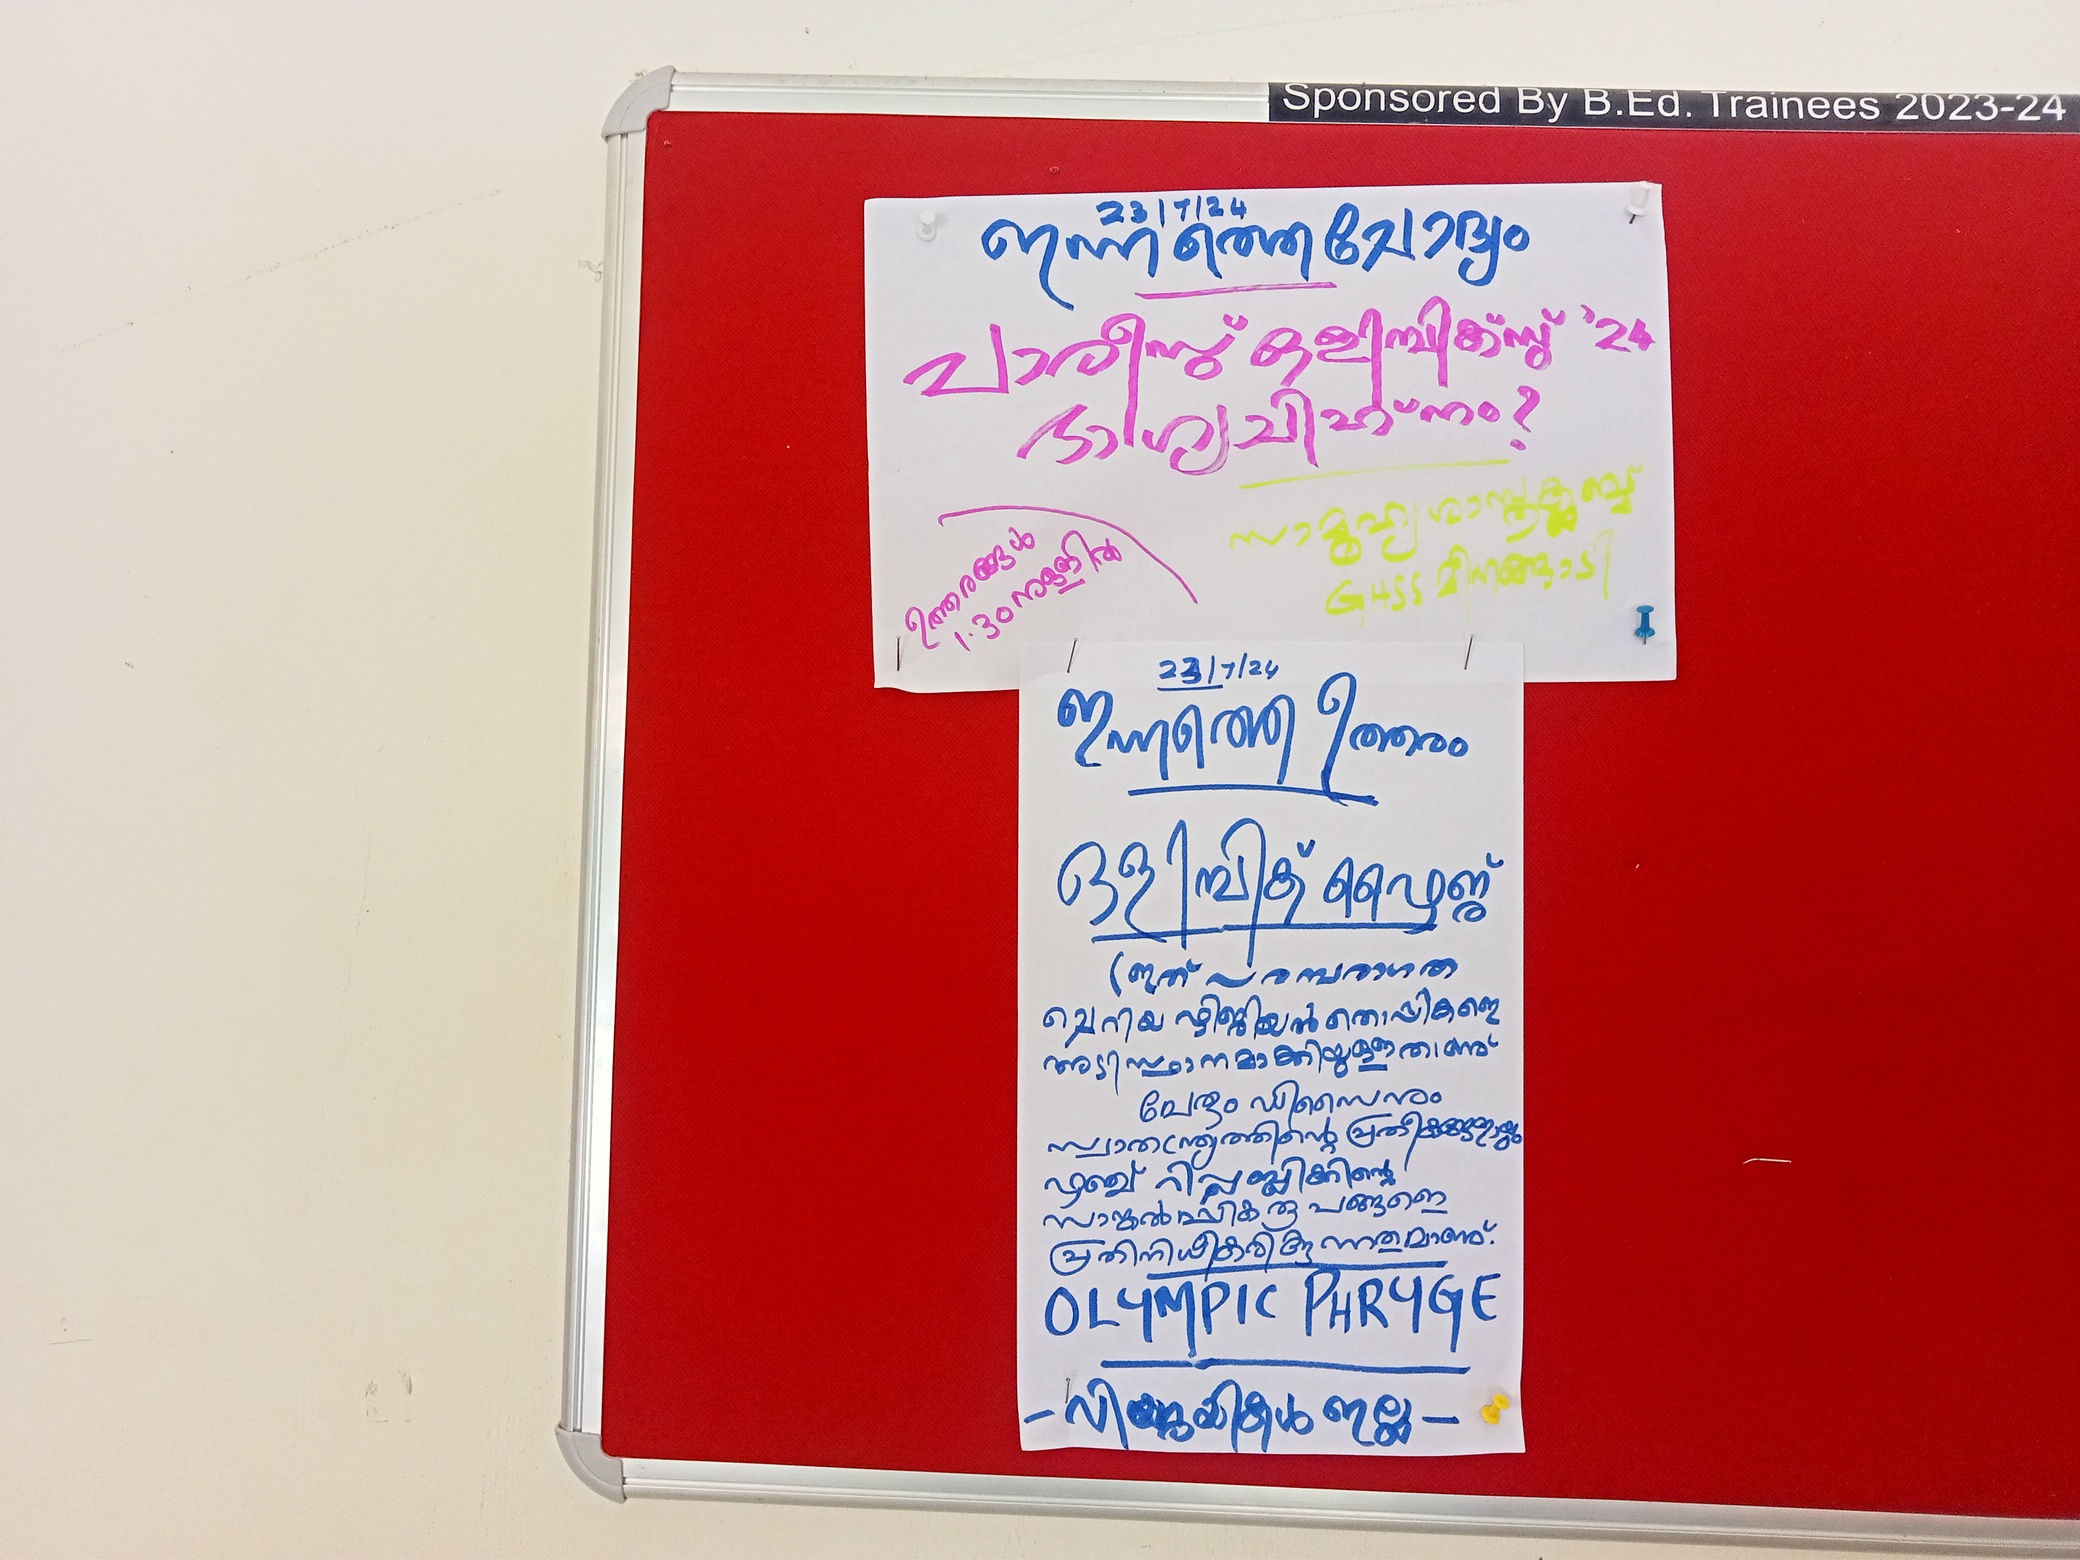 Sponsored By B.Ed. Trainees 2023-24
23/7/24
ഇന്നത്തെ ചോദ്യം
പാരീസ് ഒളിമ്പിക്സ് '24
ഭാഗ്യചിഹ്നം?
സാമൂഹ്യശാസ്ത്രക്ലബ്ബ്
GHSS മീനങ്ങാടി
ഉത്തരങ്ങൾ
1.30 നുള്ളിൽ
23/7/24
ഇന്നത്തെ ഉത്തരം
ഒളിമ്പിക് ഫ്രൈജ്
(ഇത് പരമ്പരാഗത
ചെറിയ ഫ്രിജിയൻ തൊപ്പികളെ
അടിസ്ഥാനമാക്കിയുള്ളതാണ്
പേരും ഡിസൈനും
സ്വാതന്ത്ര്യത്തിന്റെ പ്രതീകങ്ങളായും
ഫ്രഞ്ച് റിപ്പബ്ലിക്കിന്റെ
സാങ്കൽപ്പിക രൂപങ്ങളെ
പ്രതിനിധീകരിക്കുന്നതുമാണ്.
OLYMPIC PHRYGE
- വിജയികൾ ഇല്ല -